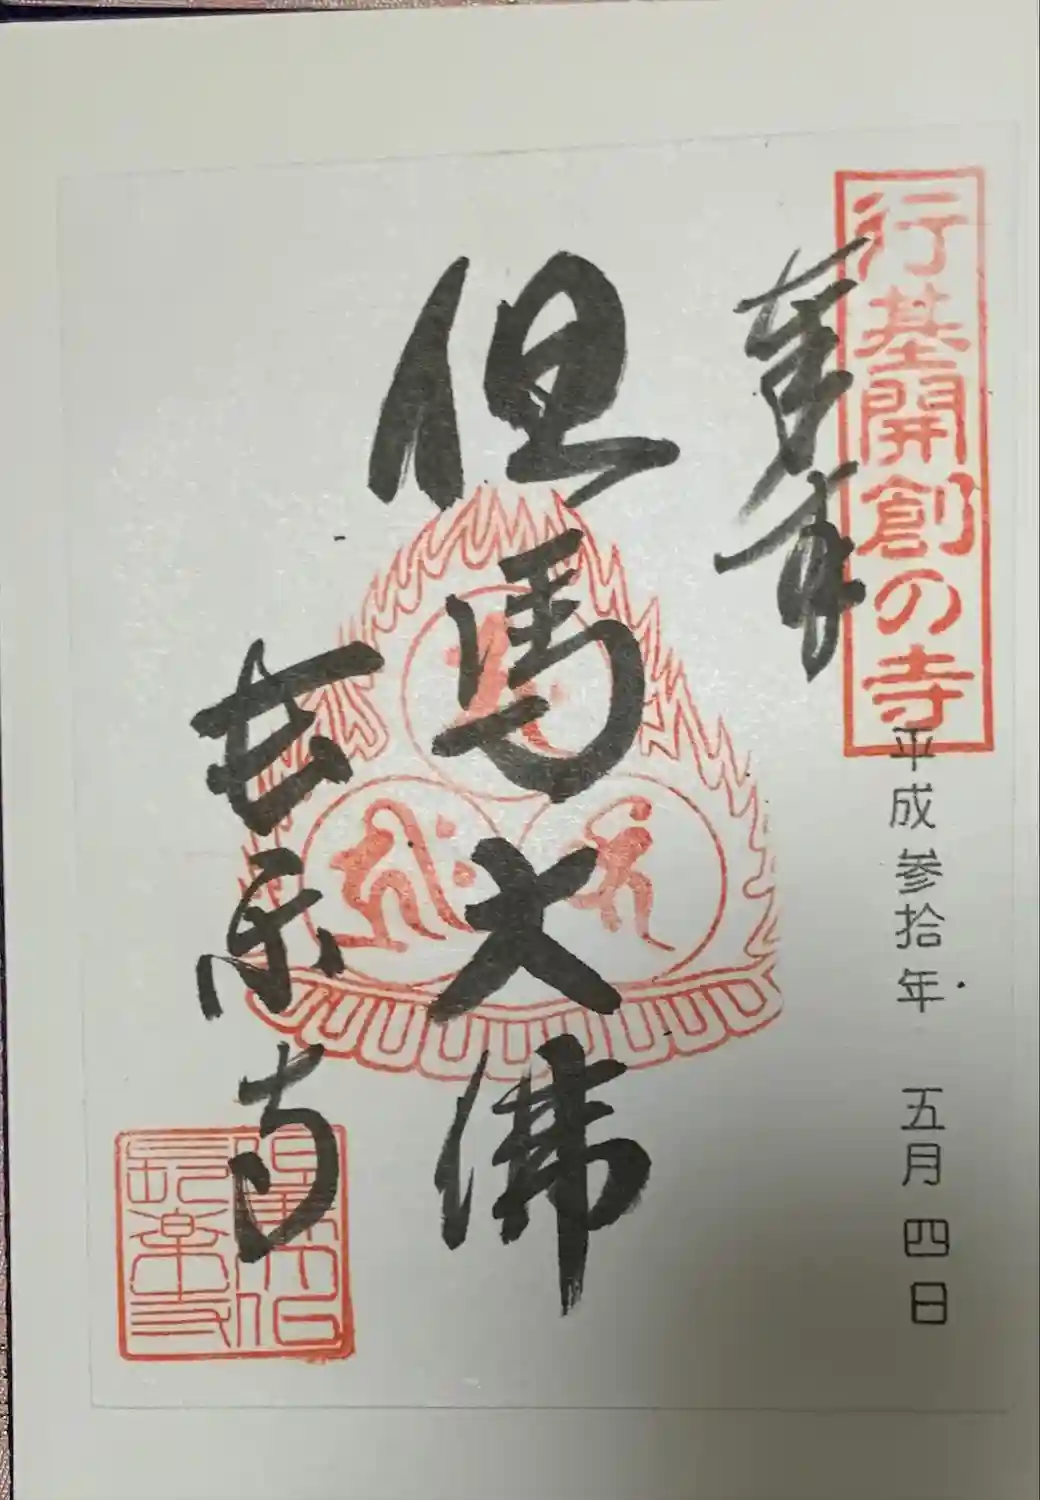 行基開創の寺
奉拝
平成参拾年 五月 四日
但馬大佛
長楽寺